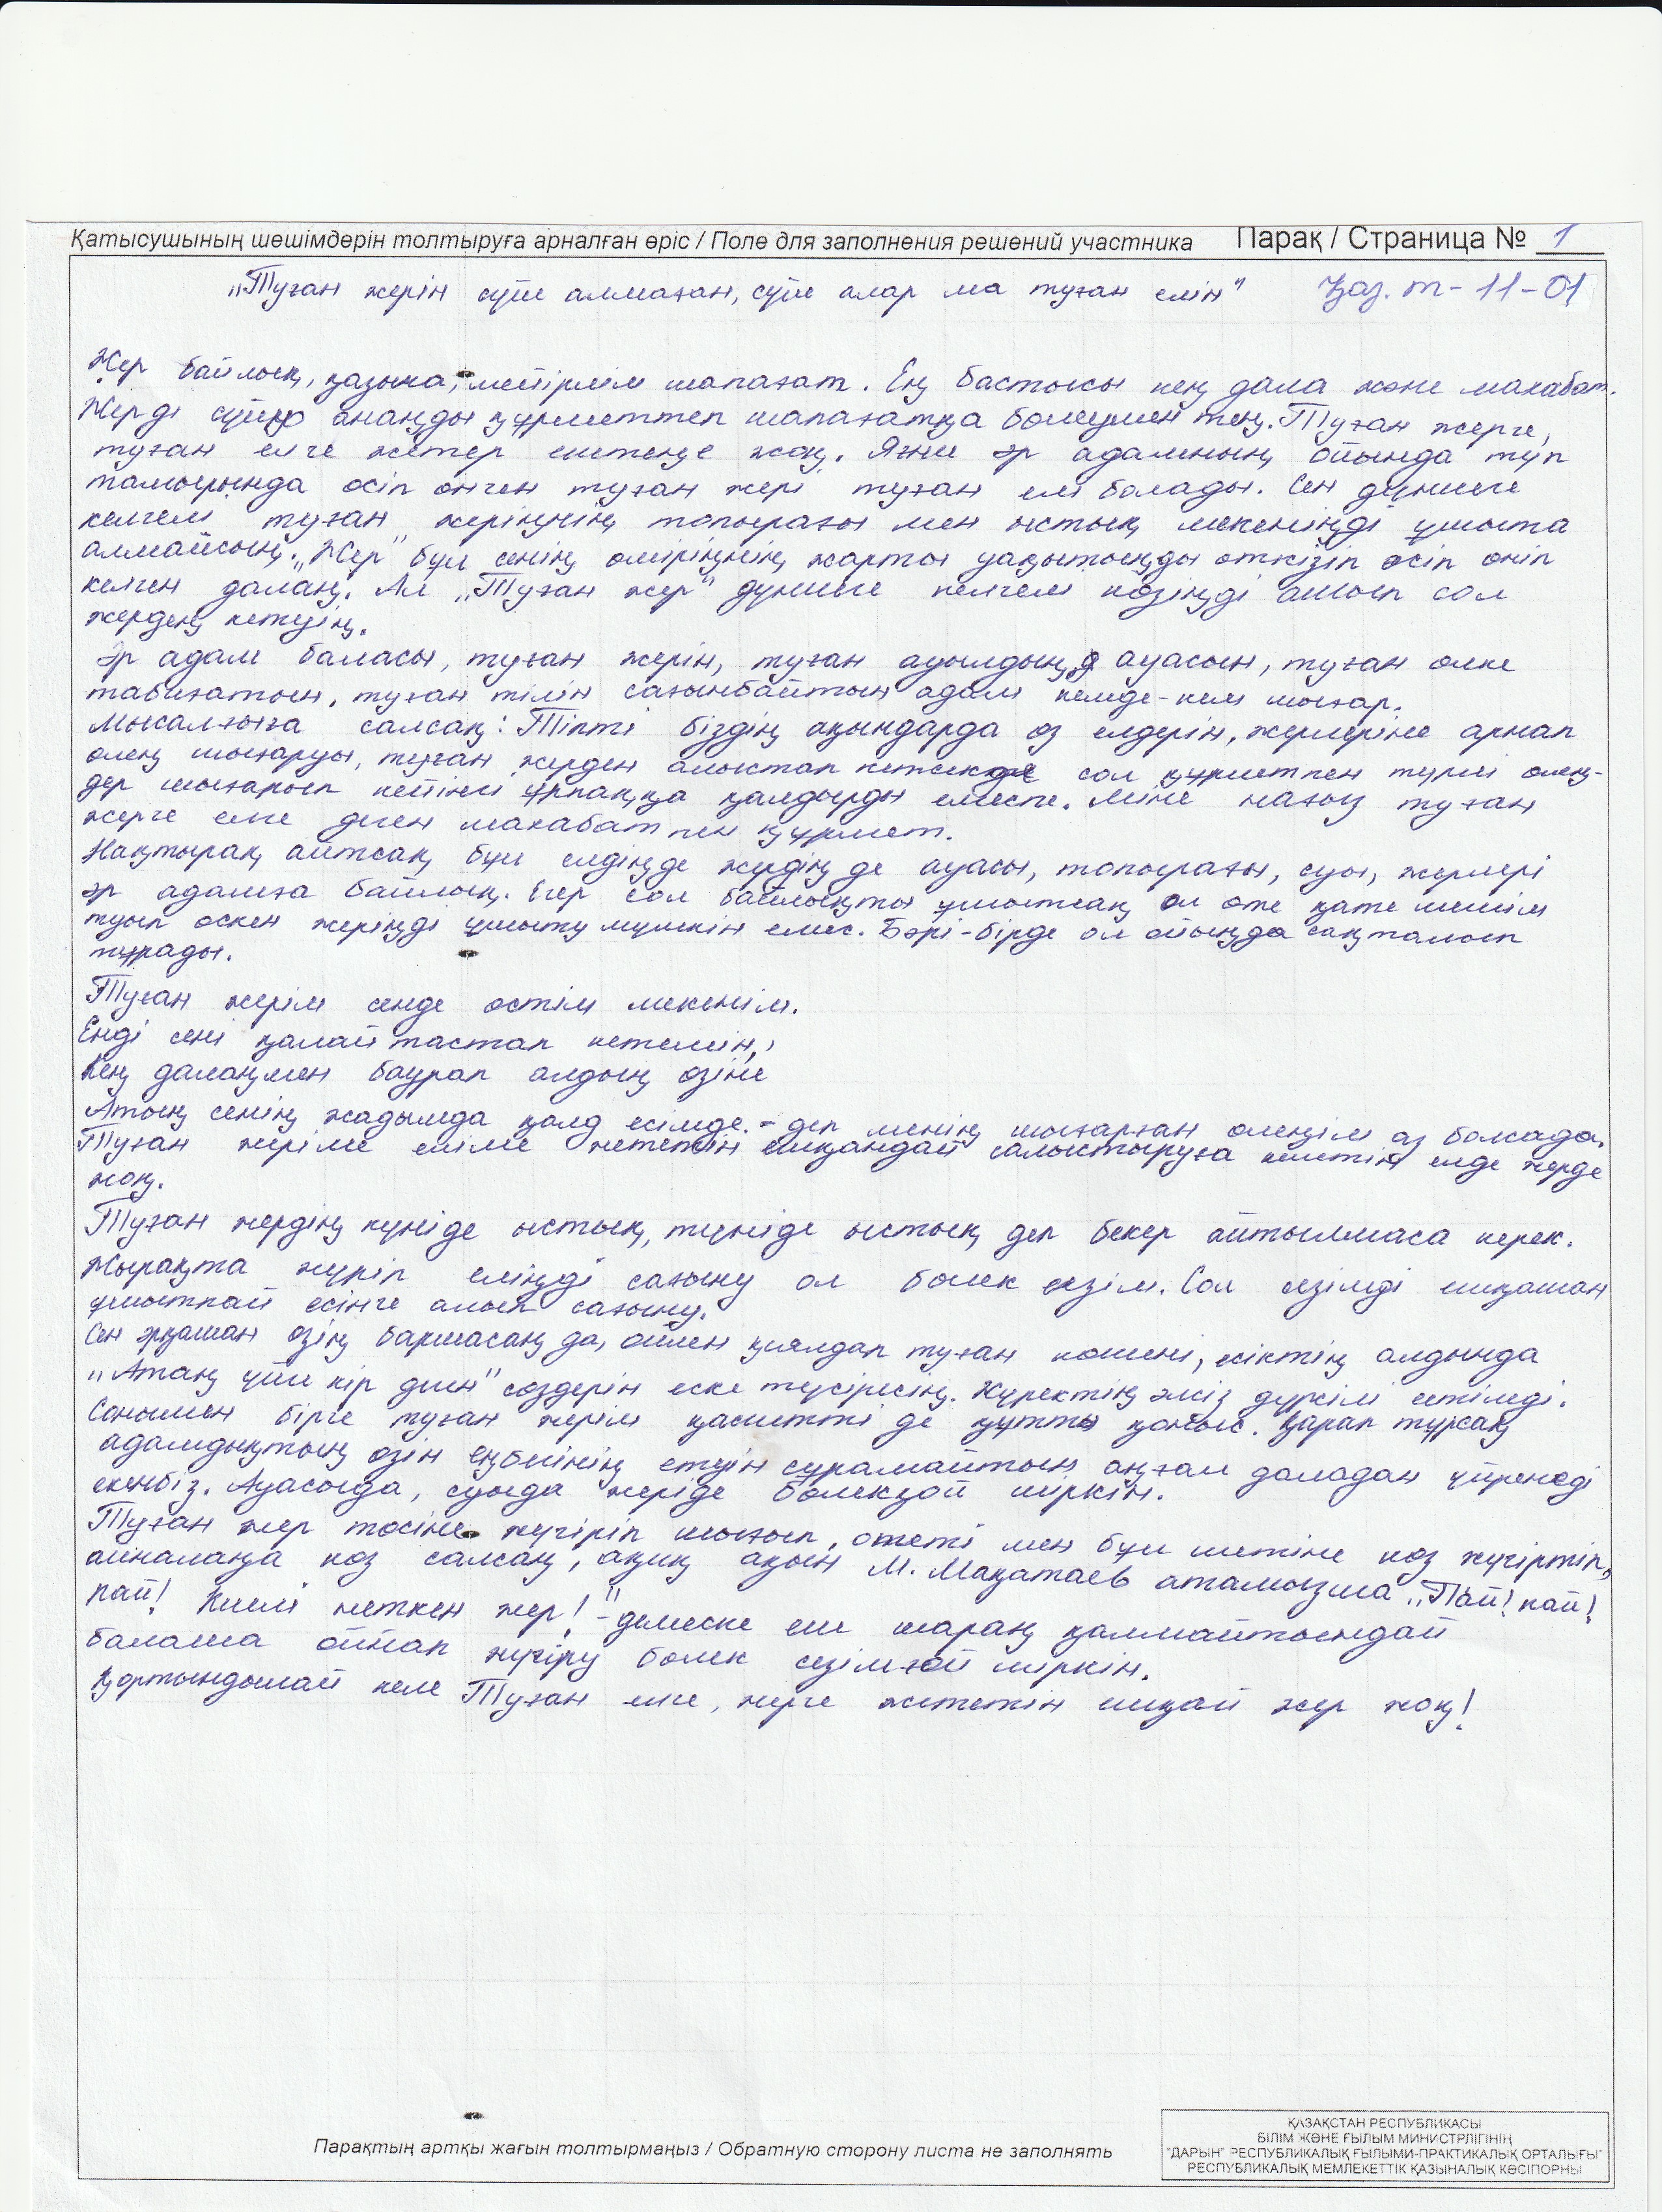 Қатысушының шешімдерін толтыруға арналған өріс / Поле для заполнения решений участника Парақ / Страница № 1
„Туған жерін сүйе алмаған, сүйе алар ма туған елін" Қаз. т - 11 - 01
Жер байлық, қазына, мейірлім шапағат. Ең бастысы кең дала және махабат.
Жерді сүйю анаңды құрметтеп шапағатқа бөлеумен тең. Туған жерге,
туған елге жетер ештеңе жоқ. Яғни әр адамның ойында түп
тамырында өсіп өнген туған жері туған елі болады. Сен дүниеге
келгелі туған жеріңнің топырағы мен ыстық мекеніңді ұмыта
алмайсың. „Жер" бұл сенің өміріңнің жарты уақытыңды өткізіп өсіп өніп
келген далаң. Ал „Туған жер" дүниеге келгелі көзіңді ашып сол
жердең кетуің.
Әр адам баласы, туған жерін, туған ауылдың ауасын, туған өлке
табиғатын, туған тілін сағынбайтын адам кемде-кем шығар.
Мысалғыға салсақ: Тіпті біздің ақындарда өз елдерін, жерлеріне арнап
өлең шығаруы, туған жерден алыстап кетсекде сол құрметпен түрлі өлең-
дер шығарып кейінгі ұрпаққа қалдырды емеспе. Міне нағыз туған
жерге елге деген махабат пен құрмет.
Нақтырақ айтсақ бұл елдіңде жердің де ауасы, топырағы, суы, жерлері
әр адамға байлық. Егер сол байлықты ұмытсақ ол өте қате шешім
туып өскен жеріңді ұмыту мүмкін емес. Бәрі-бірде ол ойыңда сақталып
тұрады.
Туған жерім сенде өстім мекенім.
Енді сені қалай тастап кетемін,
Кең далаңмен баурап алдың өзіңе
Атың сенің жадымда қалд есімде. - деп менің шығарған өлеңім аз болсада.
Туған жеріме еліме жететін ешқандай салыстыруға келетін елде жерде
жоқ.
Туған жердің күніде ыстық, түніде ыстық деп бекер айтылмаса керек.
Жырақта жүріп еліңді сағыну ол бөлек сезім. Сол сезімді ешқашан
ұмытпай есіңе алып сағыну.
Сен әрқашан өзің бармасаң да, оймен қиялдап туған көшені, есіктің алдында
„Атаң үйге кір деген" сөздерін еске түсіресің. Жүректің әлсіз дүрсілі естілді.
Сонымен бірге туған жерім қасиетті де құтты қоныс. Қарап тұрсақ
адамдықтың өзін еңбегінің етеуін сұрамайтын аңғал даладан үйренеді
екенбіз. Ауасыда, суыда жеріде бөлекқой шіркін.
Туған жер төсіне жүгіріп шығып, әнеті мен бұл шетіне көз жүгіртіп,
айналаңа көз салсаң, ақиқ ақын М. Мақатаев атамызша „Пай! пай!
пай! Киелі неткен жер! -" демеске еш шараң қалмайтындай
балаша ойнап жүгіру бөлек сезімғой шіркін.
Қортындылай келе Туған елге, жерге жететін ешқай жер жоқ!
Парақтың артқы жағын толтырмаңыз / Обратную сторону листа не заполнять
ҚАЗАҚСТАН РЕСПУБЛИКАСЫ
БІЛІМ ЖӘНЕ ҒЫЛЫМ МИНИСТРЛІГІНІҢ
"ДАРЫН" РЕСПУБЛИКАЛЫҚ ҒЫЛЫМИ-ПРАКТИКАЛЫҚ ОРТАЛЫҒЫ"
РЕСПУБЛИКАЛЫҚ МЕМЛЕКЕТТІК ҚАЗЫНАЛЫҚ КӘСІПОРНЫ